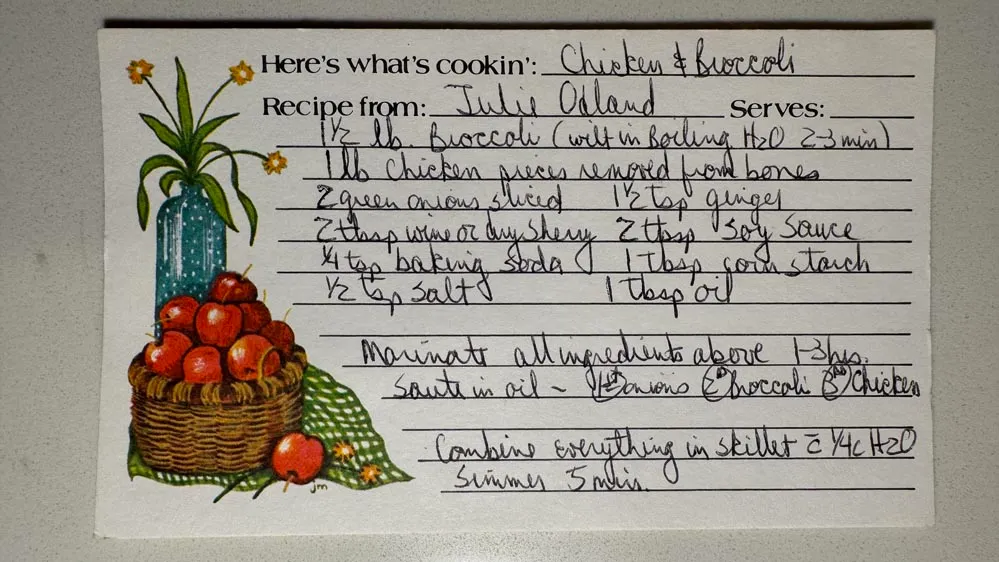 Here's what's cookin': Chicken & Broccoli
Recipe from: Julie Odland Serves:
1 1/2 lb. Broccoli (wilt in Boiling H2O 2-3 min)
1 lb Chicken pieces removed from bones
2 green onions sliced 1 1/2 tsp ginger
2 tbsp wine or dry sherry 2 tbsp soy sauce
1/4 tsp baking soda 1 Tbsp corn starch
1/2 tsp salt 1 tbsp oil
Marinate all ingredients above 1-3 hrs.
Saute in oil ~ 1st onions 2nd broccoli 3rd Chicken
Combine everything in skillet c̄ 1/4 c H2O
Simmer 5 min.
jm